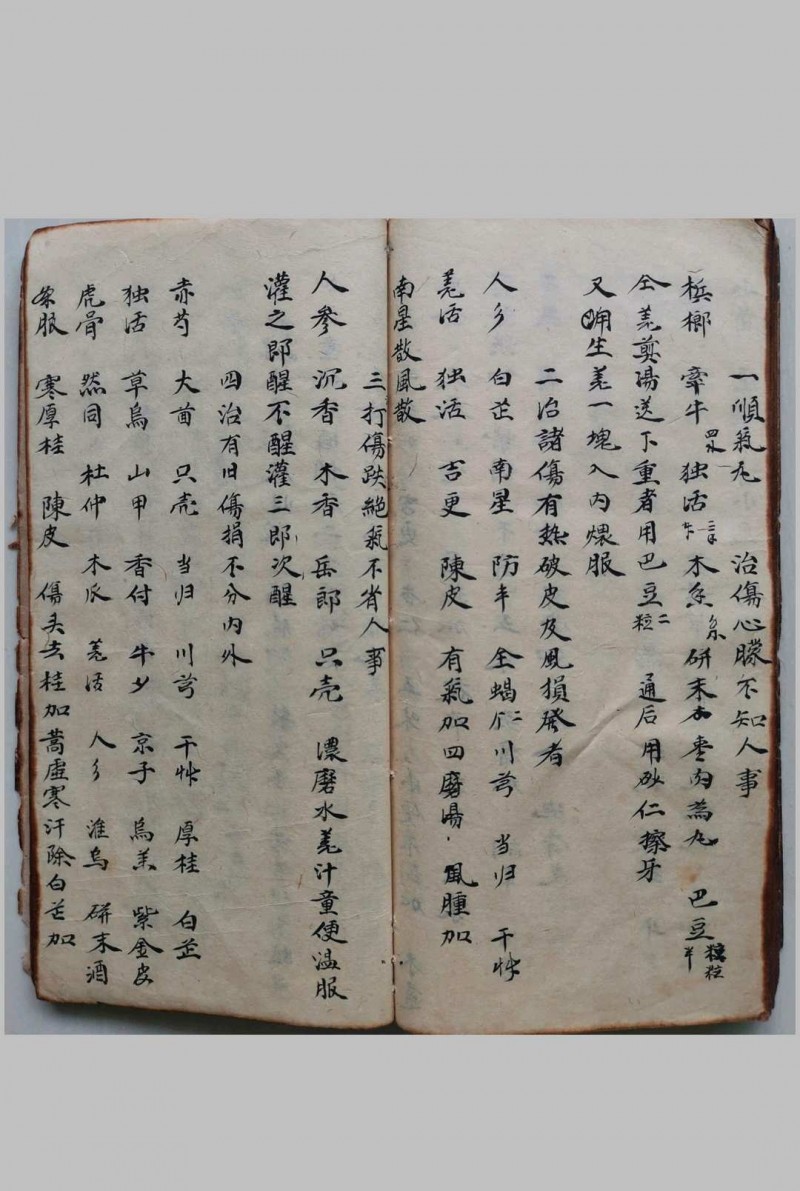 一順氣丸 治傷心朦不知人事
梹榔 牽牛 四分 独活 木香 研末 枣肉為丸 巴豆 粒半
仝羌煎湯送下重者用巴豆二粒 通后用砂仁擦牙
又用生羌一塊入内煨服
二治諸傷有热破皮及風損發者
人乡 白芷 南星 防丰 全蝎 二个 川芎 当归 干艸
羌活 独活 吉更 陳皮 有氣加四磨湯 風腫加
南星散風散
三打傷跌絕氣不省人事
人參 沉香 木香 缶郎 只壳 濃磨水羌汁童便温服
灌之即醒不醒灌三郎次醒
四治有旧傷損不分内外
赤芍 大茴 只壳 当归 川芎 干艸 厚桂 白芷
独活 草烏 山甲 香付 牛夕 京子 烏羔 紫金皮
虎骨 然同 杜仲 木瓜 羌活 人乡 淮烏 研末酒
茶服 寒厚桂 陳皮 傷头去桂加蒿虚寒汗除白芷加